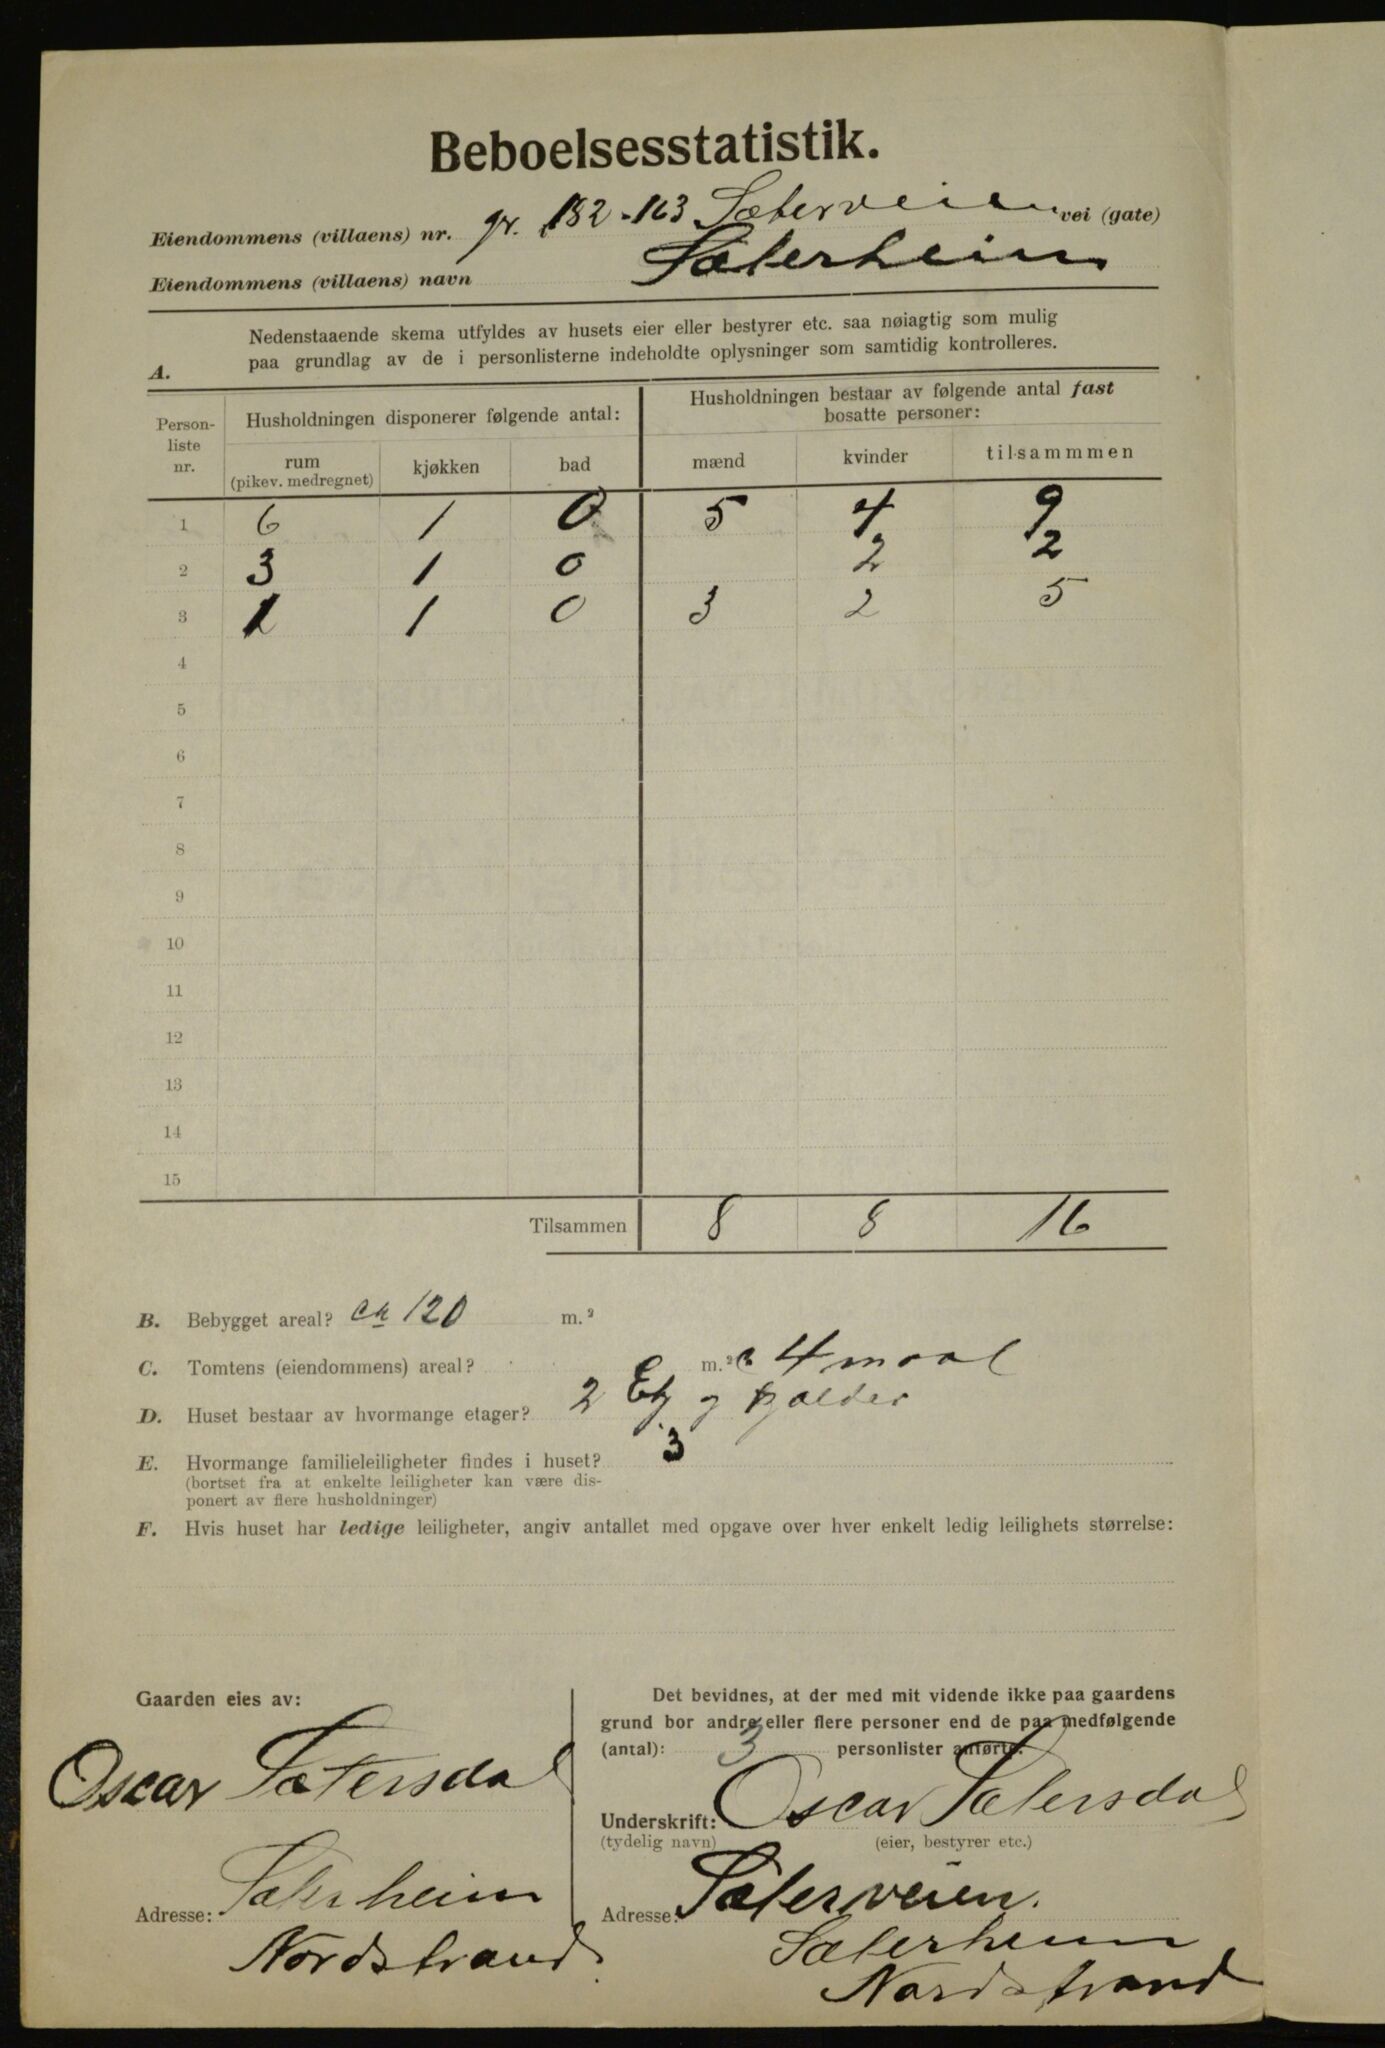 Beboelsesstatistik.
Eiendommens (villaens) nr. gr. 182-163 Sæterveien vei (gate)
Eiendommens (villaens) navn Sæterheim
A. Nedenstaaende skema utfyldes av husets eier eller bestyrer etc. saa nøiagtig som mulig
paa grundlag av de i personlisterne indeholdte oplysninger som samtidig kontrolleres.
Person-
liste
nr.
Husholdningen disponerer følgende antal:
rum
(pikev. medregnet)
kjøkken
bad
Husholdningen bestaar av følgende antal fast
bosatte personer:
mænd
kvinder
tilsammmen
1 6 1 0 5 4 9
2 3 1 0 2 2
3 1 1 0 3 2 5
4
5
6
7
8
9
10
11
12
13
14
15
Tilsammen 8 8 16
B. Bebygget areal? ca 120 m.²
C. Tomtens (eiendommens) areal? m.² 4 maal
D. Huset bestaar av hvormange etager? 2 Etg og kjælder
E. Hvormange familieleiligheter findes i huset? 3
(bortset fra at enkelte leiligheter kan være dis-
ponert av flere husholdninger)
F. Hvis huset har ledige leiligheter, angiv antallet med opgave over hver enkelt ledig leilighets størrelse:
Gaarden eies av:
Oscar Sætersdal
Adresse: Sæterheim
Nordstrand
Det bevidnes, at der med mit vidende ikke paa gaardens
grund bor andre eller flere personer end de paa medfølgende
(antal): 3 personlister anførte.
Underskrift: Oscar Sætersdal
(tydelig navn) (eier, bestyrer etc.)
Adresse: Sæterveien.
Sæterheim
Nordstrand